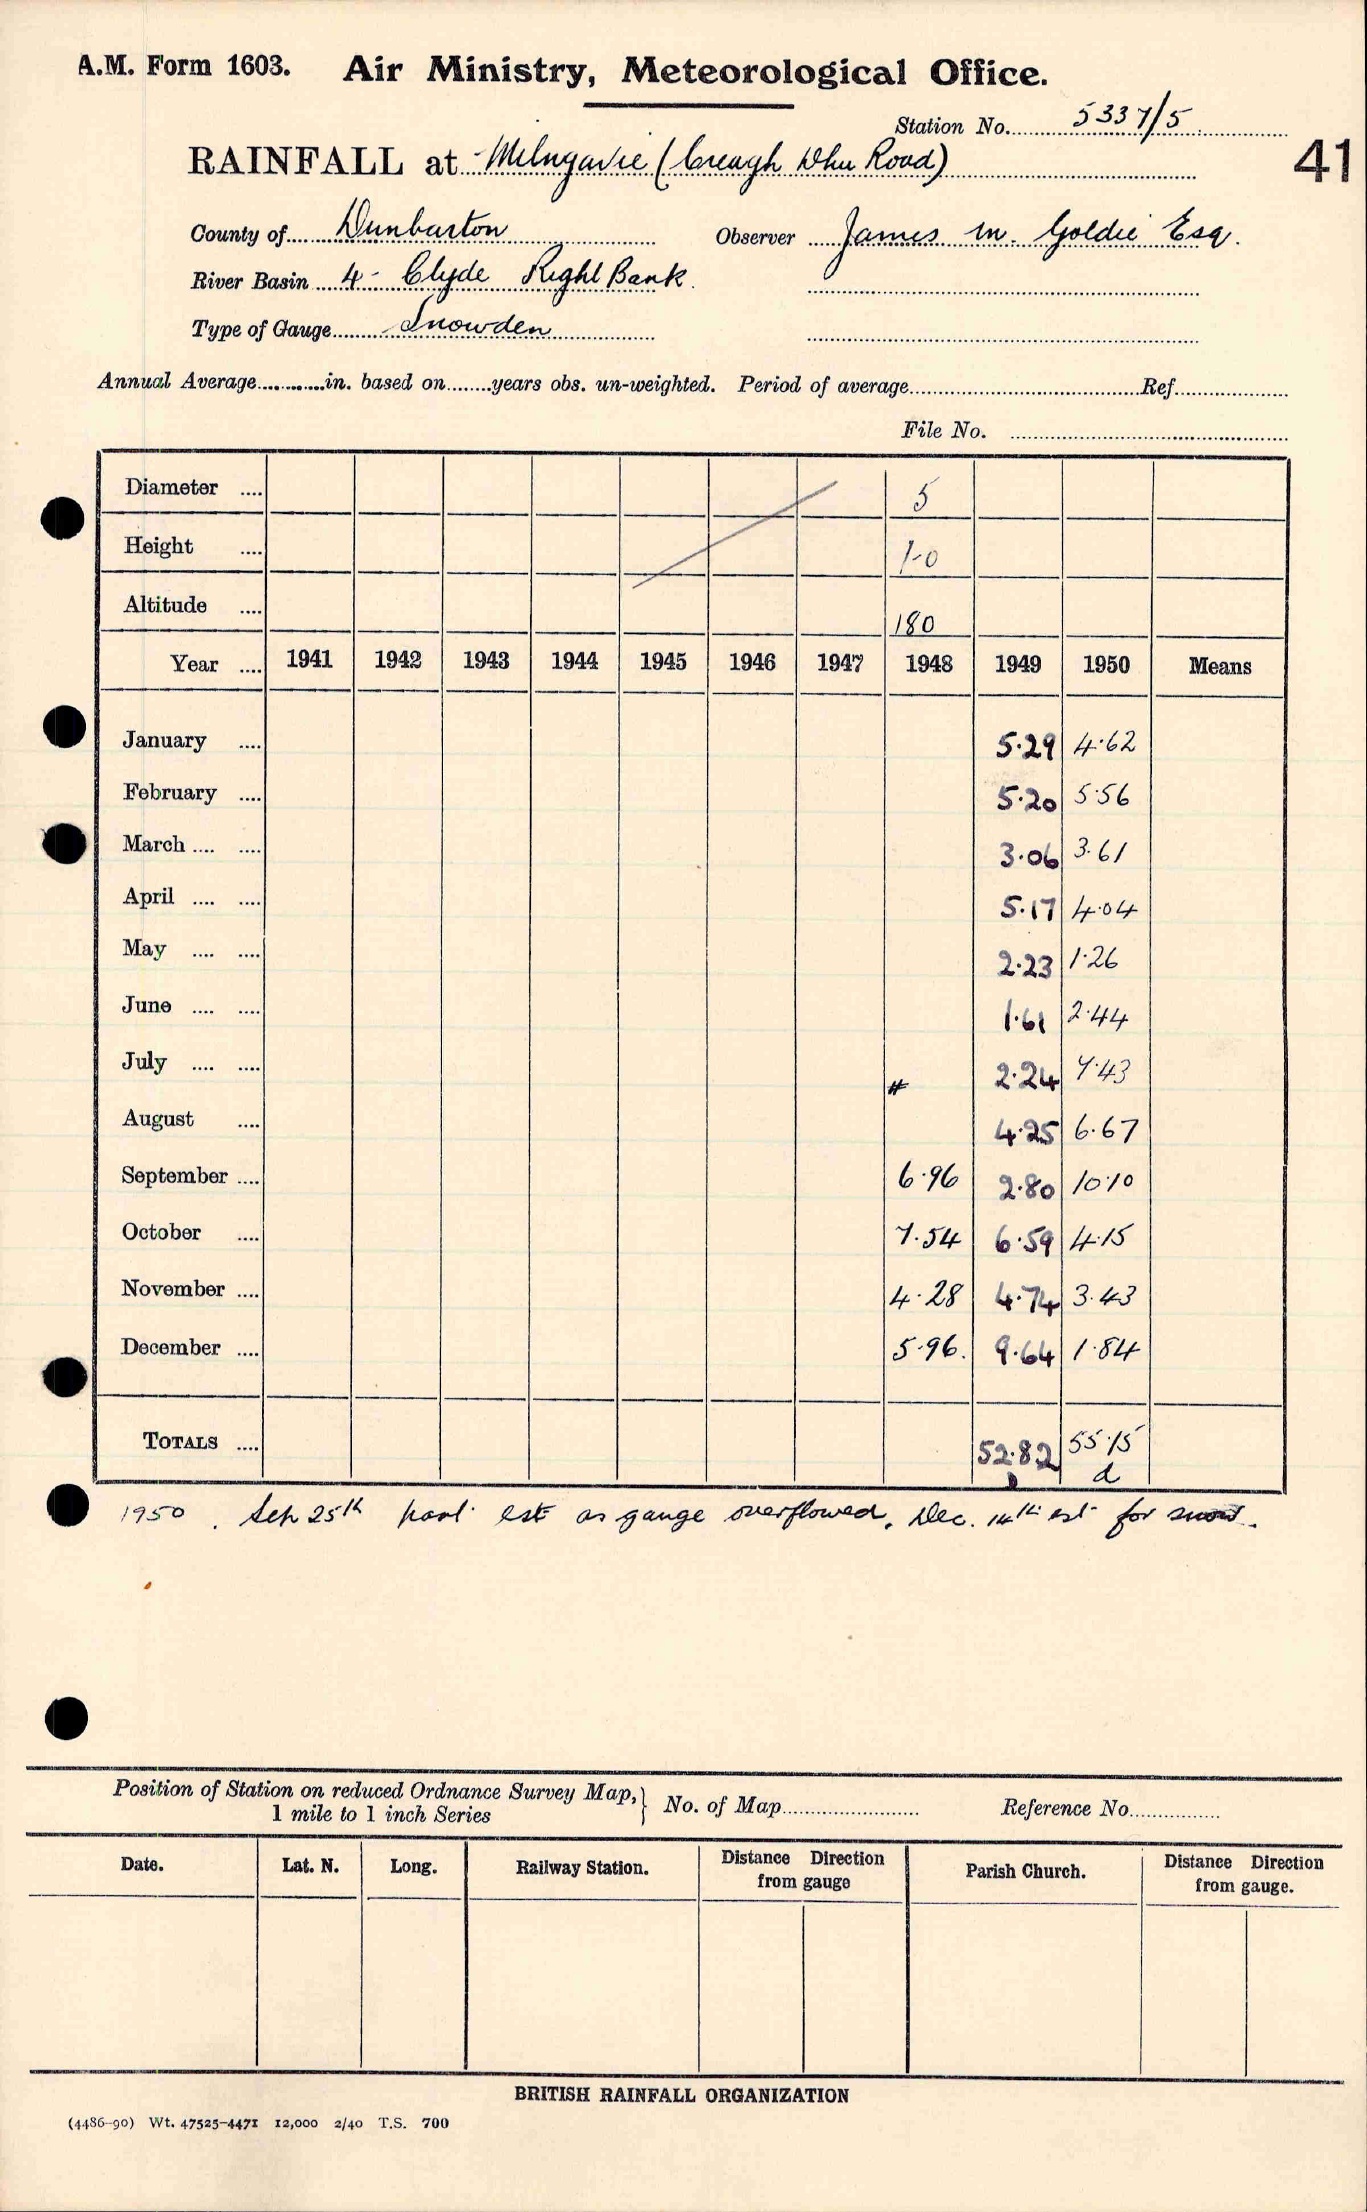 A.M. Form 1603. Air Ministry, Meteorological Office.
Station No. 5337/5
41
RAINFALL at Milngavie (Creagh Dhu Road)
County of Dunbarton Observer James M. Goldie Esq.
River Basin 4 - Clyde Right Bank.
Type of Gauge Snowden
Annual Average............in. based on........years obs. un-weighted. Period of average........Ref........
File No. ........
Diameter .... 5
Height .... 1-0
Altitude .... 180
Year .... 1941 1942 1943 1944 1945 1946 1947 1948 1949 1950 Means
January .... 5.29 4.62
February .... 5.20 5.56
March .... .... 3.06 3.61
April .... .... 5.17 4.04
May .... .... 2.23 1.26
June .... .... 1.61 2.44
July .... .... # 2.24 7.43
August .... 4.25 6.67
September .... 6.96 2.80 10.10
October .... 7.54 6.59 4.15
November .... 4.28 4.74 3.43
December .... 5.96. 9.64 1.84
TOTALS .... 52.82 55.15
d
1950. Sep 25th part est as gauge overflowed. Dec. 14th est for snow.
Position of Station on reduced Ordnance Survey Map,} No. of Map........ Reference No........
1 mile to 1 inch Series
Date. Lat. N. Long. Railway Station. Distance Direction from gauge Parish Church. Distance Direction from gauge.
BRITISH RAINFALL ORGANIZATION
(4486-90) Wt. 47525-4471 12,000 2/40 T.S. 700